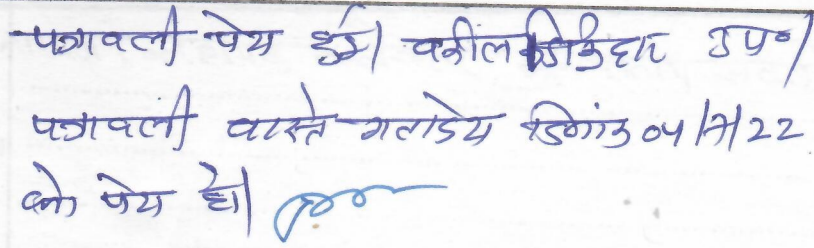 पत्रावली पेश हुई। वकील डिक्रीदार उप०।
पत्रावली वास्ते गतादेश दिनांक 04/7/22
को पेश हो।